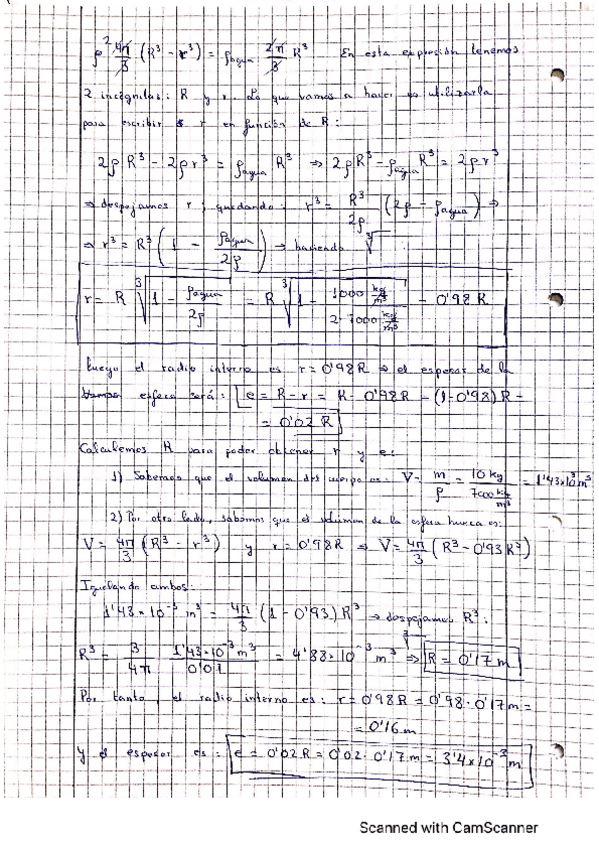 ρ 2 4π/3 (R³ - r³) = ρagua 2π/3 R³ En esta expresión tenemos
2 incógnitas: R y r. Lo que vamos a hacer es utilizarla
para escribir r en función de R:
2ρR³ - 2ρr³ = ρagua R³ ⇒ 2ρR³ - ρagua R³ = 2ρr³
⇒ despejamos r, quedando: r³ = R³/2ρ (2ρ - ρagua) ⇒
⇒ r³ = R³ (1 - ρagua/2ρ) → haciendo ∛
r = R ∛(1 - ρagua/2ρ) = R ∛(1 - 1000 kg/m³ / 2·7000 kg/m³) = 0'98 R
Luego el radio interno es r = 0'98R ⇒ el espesor de la
esfera será: e = R - r = R - 0'98R = (1-0'98)R =
= 0'02 R
Calculemos R para poder obtener r y e:
1) Sabemos que el volumen del cuerpo es: V = m/ρ = 10 kg / 7000 kg/m³ = 1'43×10⁻³ m³
2) Por otro lado, sabemos que el volumen de la esfera hueca es:
V = 4π/3 (R³ - r³) y r = 0'98R ⇒ V = 4π/3 (R³ - 0'93R³)
Igualando ambos:
1'43×10⁻³ m³ = 4π/3 (1 - 0'93) R³ → despejamos R³:
R³ = 3/4π 1'43·10⁻³ m³ / 0'07 = 4'83·10⁻³ m³ ⇒ R = 0'17 m
Por tanto, el radio interno es: r = 0'98R = 0'98·0'17m =
= 0'16 m
y el espesor es: e = 0'02R = 0'02·0'17m = 3'4×10⁻³ m
Scanned with CamScanner